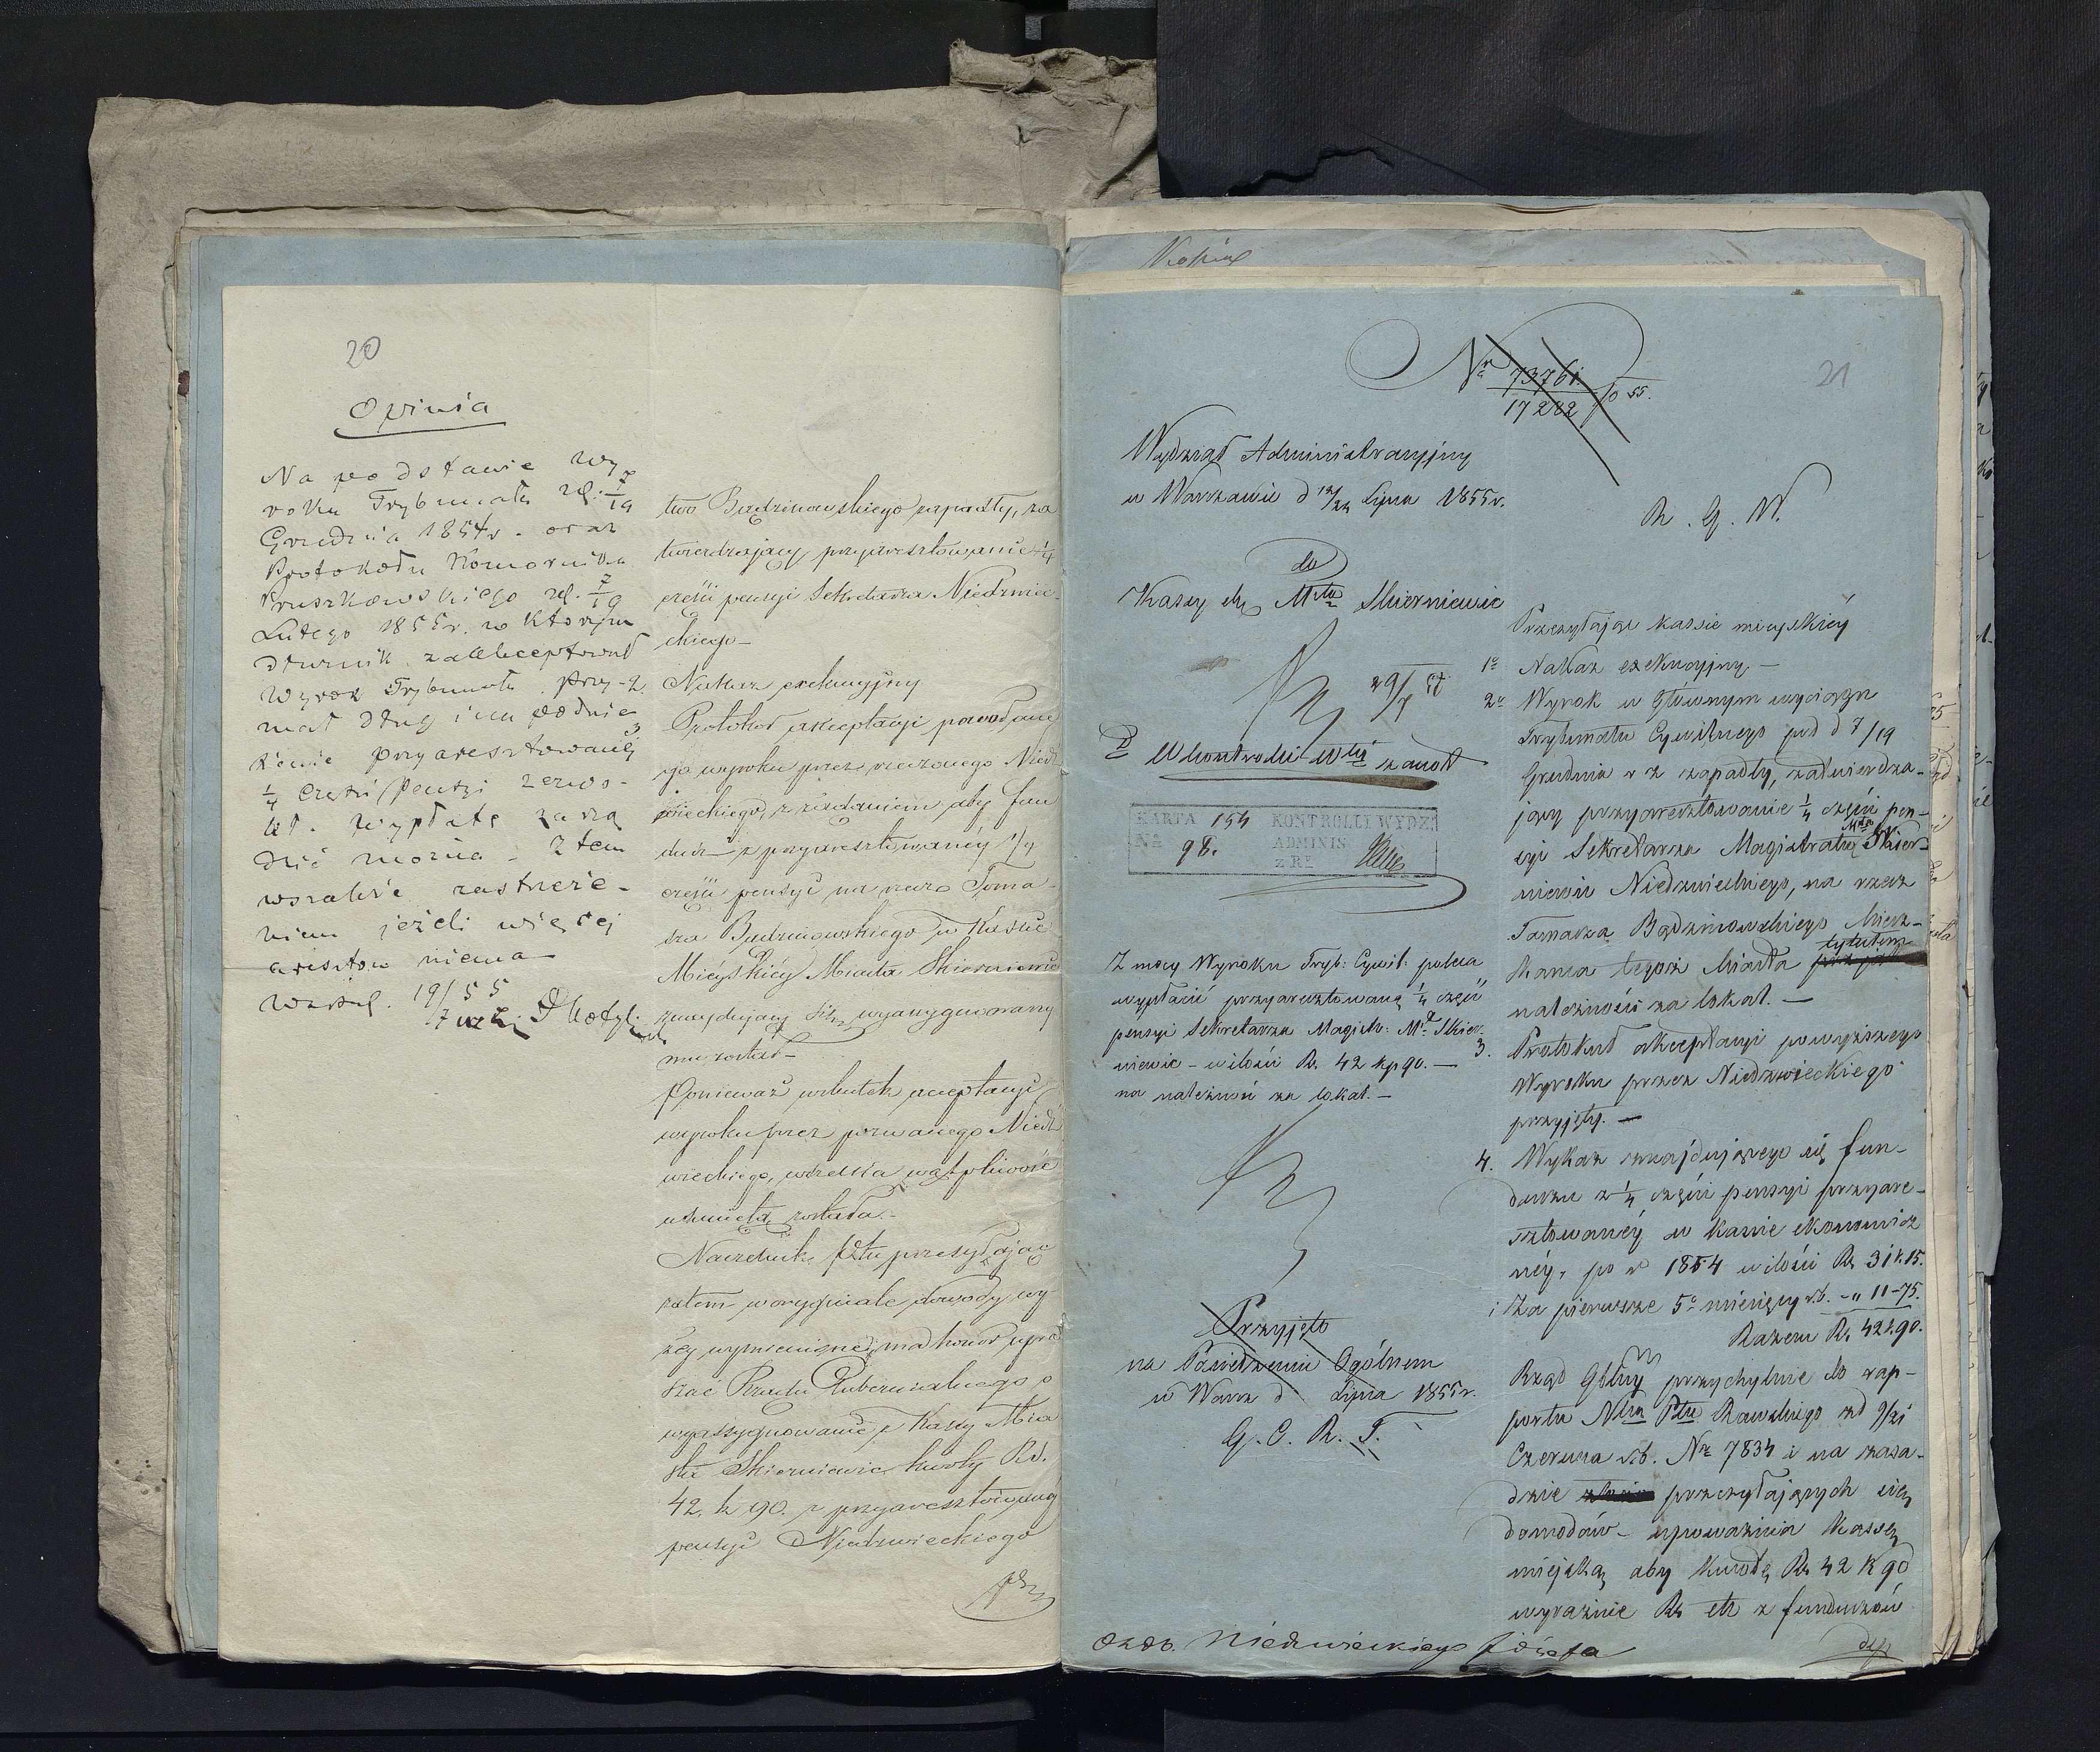 20
Opinia
Na podstawie Wy-
roku Trybunału z d. 7/19
Grudnia 1854 r. oraz
Protokołu Komornika
Pruszkowskiego z d. 7/19
Lutego 1855 r. w którym
dłużnik zaakceptował
Wyrok Trybunału, przy-
znał dług i na podnie-
sienie przyaresztowanéj
1/4 Części Pensyi zezwo-
lił. Wypłatę zarzą-
dzić można - z tem
wszakże zastrzeże-
niem jeżeli więcej
aresztów niema
19/7 55
two Budzinowskiego zapadły, za
twierdzający przyaresztowanie 1/4
części pensyi Sekretarza Niedzwie-
ckiego
Nakaz exekucyjny
Protokół akceptacyi powołane
go wyroku przez rzeczonego Niedz
wieckiego, z żądaniem aby fun
dusz z przyaresztowanéj 1/4
części pensyi na rzecz Toma-
sza Budzinowskiego w Kassie
Miéjskiéj Miasta Skierniewic
znajdujący się, wyassygnowany
mu został
Ponieważ wskutek acceptacyi
wyroku przez pozwanego Niedz
wieckiego, wszelka wątpliwość
usunięta została.
Naczelnik Ptu przesyłając
zatem w oryginale dowody wy
żéj wymienione, ma honor upra
szać Rządu Gubernialnego o
wyassygnowanie z Kassy Mia
sta Skierniewic kwoty Rs.
42 k 90. z przyaresztowanéj
pensyi Niedzwieckiego
Kopia
21
Nr 73761/17282 55.
Wydział Administracyjny
w Warszawie d 12/24 Lipca 1855 r.
R. G. W.
do
Kassy Ek Mta Skierniewic
29/7 55
W kontrolli
KARTA 154 KONTROLLI WYDZ:
No 98. ADMINIS
z R
Z mocy Wyroku Tryb: Cywil: poleca
wypłacić przyaresztowaną 1/4 część
pensyi Sekretarza Magistr: Mta Skier-
niewic - w ilości Rs. 42 kp 90. —
na należność za lokal. —
Przyjęto
na Posiedzeniu Ogólnem
w Warsz d Lipca 1855 r.
G. C. R. T.
Przesyłając kassie miejskiéj
1o Nakaz exekucyjny. —
2o Wyrok w głównym wyciągu
Trybunału Cywilnego pod d 7/19
Grudnia r z zapadły, zatwierdza-
jący przyaresztowanie 1/4 części pen-
syi Sekretarza Magistratu Mta Skier-
niewic Niedzwieckiego, na rzecz
Tomasza Budzinowskiego Miesz-
kańca tegoż Miasta tytułem
należności za lokal. —
3. Protokuł akceptacyi powyższego
Wyroku przez Niedzwieckiego
przyjęty. —
4. Wykaz znajdującego się fun-
duszu z 1/4 części pensyi przyare-
sztowanéj w kassie ekonomicz
néj, po r 1854 w ilości Rs 31 k. 15.
i za pierwsze 5 miesięcy r. b. - „ 11 - 75.
Razem Rs 42 k. 90.
Rząd Gblny przychylnie do rap-
portu Nlka Ptu Rawskiego z d 9/21
Czerwca r. b. Nr 7834 i na zasa-
dzie przesyłających się
dowodów - upoważnia Kassę
miejską aby kwotę Rs 42 k 90
wyraźnie Rs etc z funduszów
Osob. Niedzwieckiego Józefa